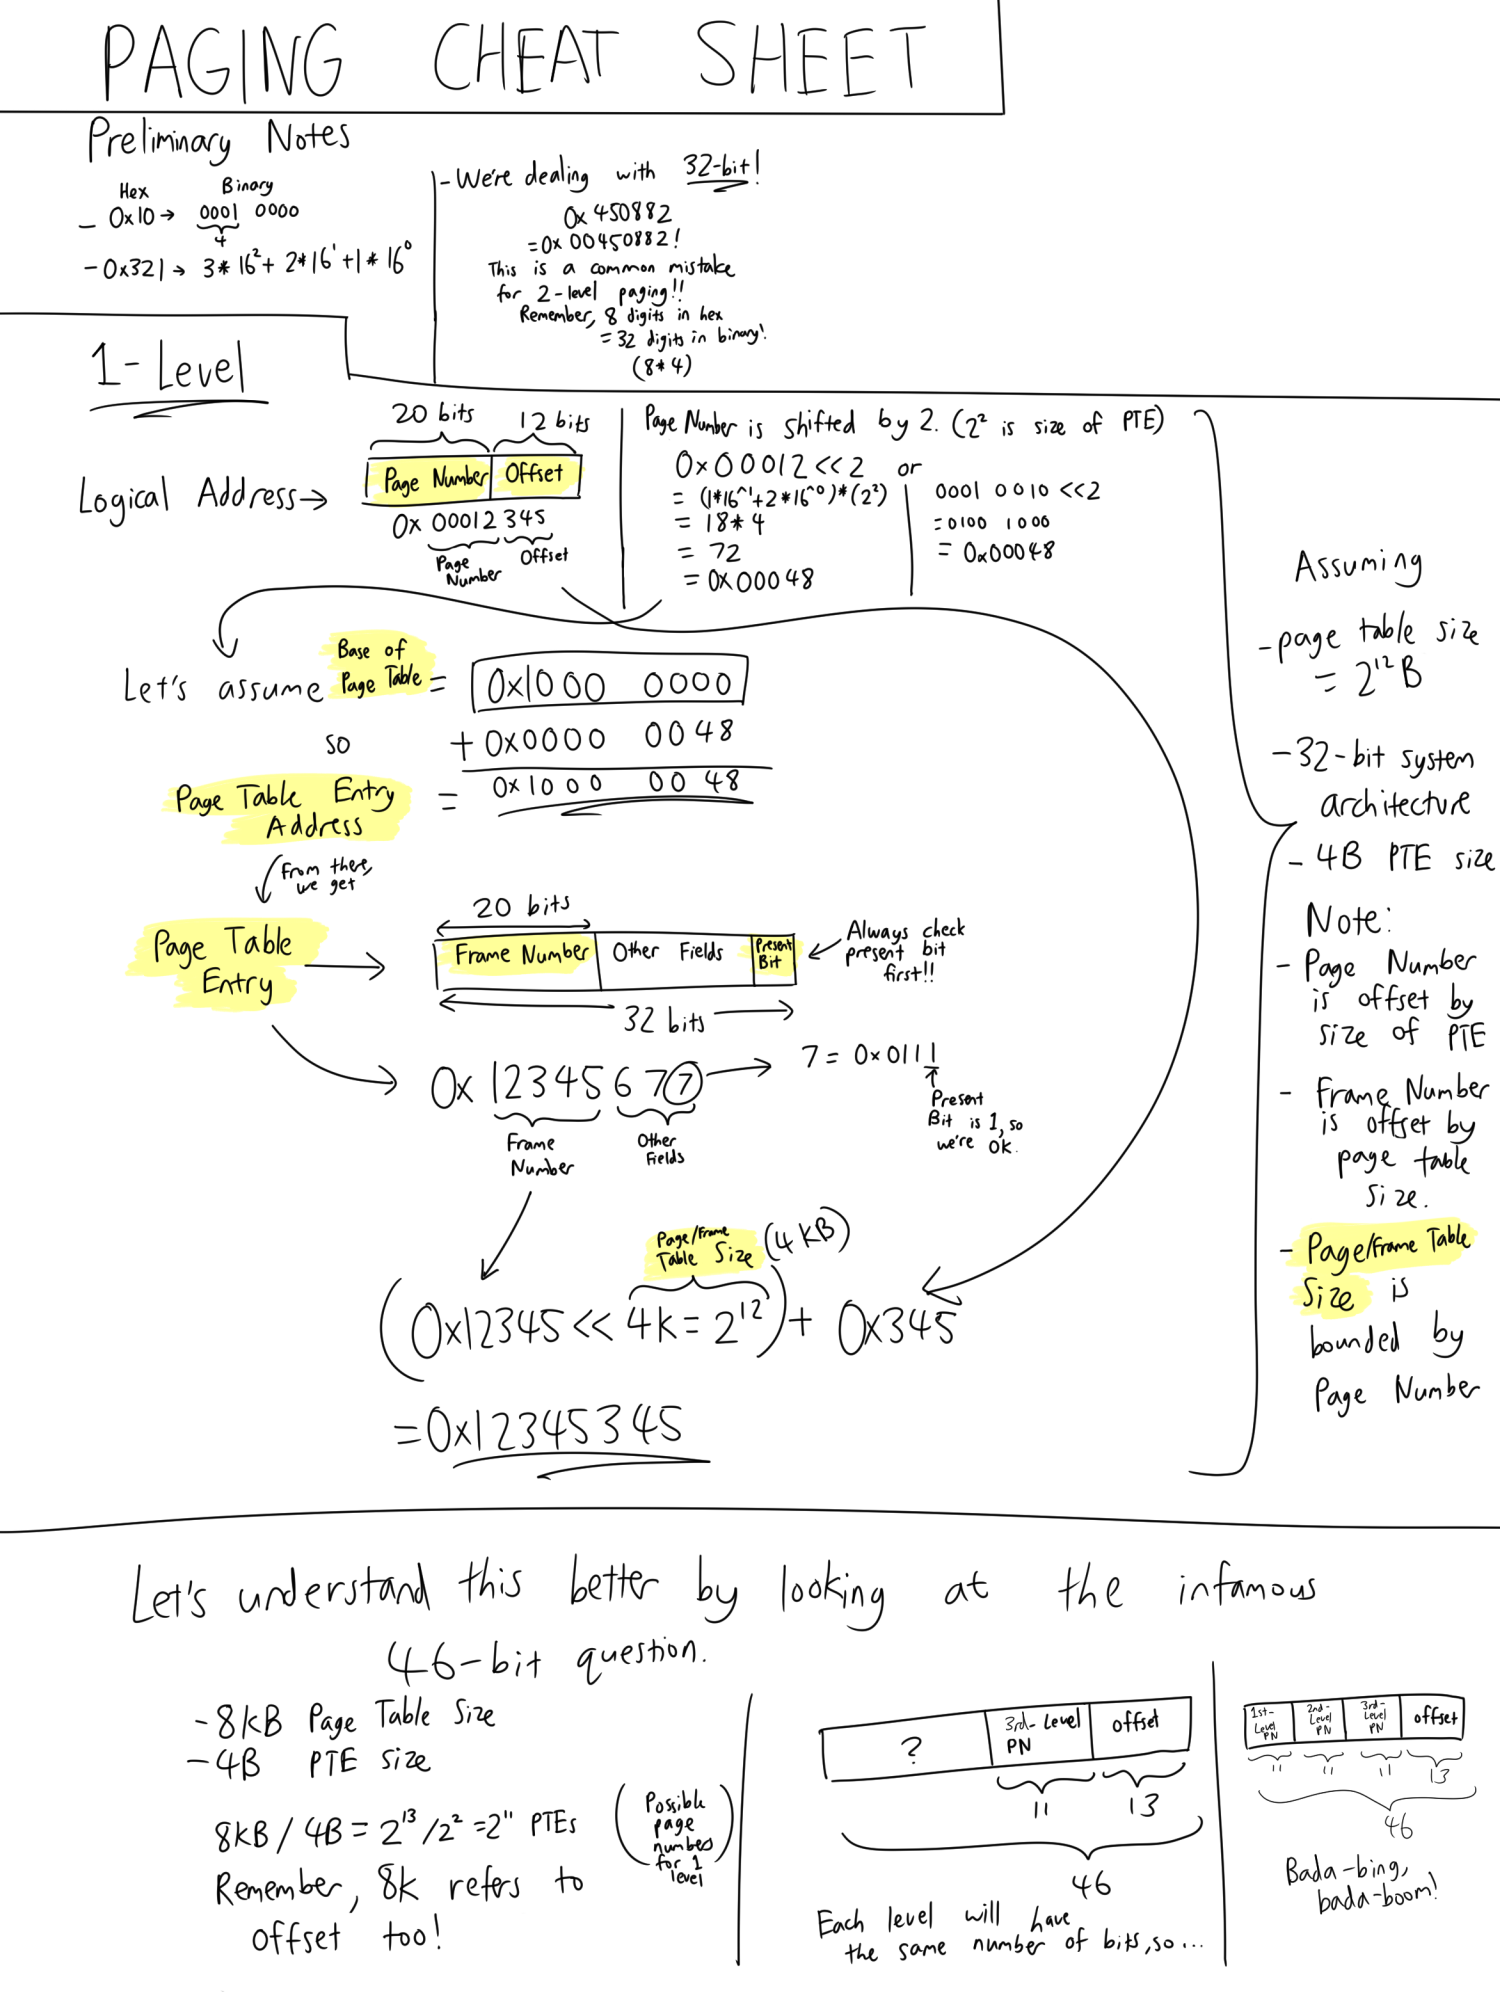 PAGING CHEAT SHEET
Preliminary Notes
Hex Binary
- 0x10 → 0001 0000
4
- 0x321 → 3*16² + 2*16¹ + 1*16⁰
- We're dealing with 32-bit!
0x450882
= 0x 00450882!
This is a common mistake
for 2-level paging!!
Remember, 8 digits in hex
= 32 digits in binary!
(8*4)
1-Level
20 bits 12 bits
Logical Address → Page Number Offset
0x 00012 345
Page Number Offset
Page Number is shifted by 2. (2² is size of PTE)
0x00012 <<2 or
= (1*16^1+2*16^0)*(2²)
= 18*4
= 72
= 0x00048
0001 0010 <<2
= 0100 1000
= 0x00048
Let's assume Base of Page Table = 0x1000 0000
so + 0x0000 0048
Page Table Entry Address = 0x1000 0048
From there,
we get
Page Table
Entry
20 bits
Frame Number Other Fields Present Bit
32 bits
Always check
present bit
first!!
0x 12345 677
7 = 0x0111
Present
Bit is 1, so
we're ok.
Frame
Number
Other
Fields
Page/Frame
Table Size (4KB)
(0x12345 << 4k = 2¹²) + 0x345
= 0x12345345
Assuming
- page table size
= 2¹²B
- 32-bit system
architecture
- 4B PTE size
Note:
- Page Number
is offset by
size of PTE
- Frame Number
is offset by
page table
size.
- Page/Frame Table
Size is
bounded by
Page Number
Let's understand this better by looking at the infamous
46-bit question.
- 8KB Page Table Size
- 4B PTE size
8KB / 4B = 2¹³/2² = 2¹¹ PTEs
(Possible
page
numbers
for 1
level)
Remember, 8k refers to
offset too!
? 3rd-Level PN offset
11 13
46
Each level will have
the same number of bits, so...
1st-Level PN 2nd-Level PN 3rd-Level PN offset
11 11 11 13
46
Bada-bing,
bada-boom!